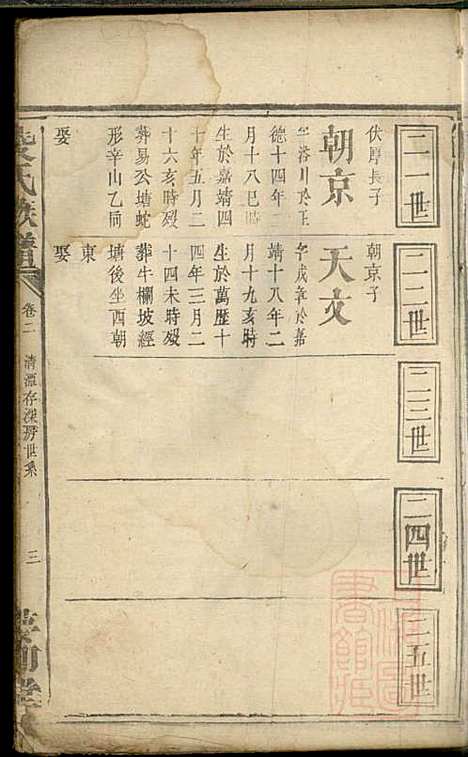 二一世
二二世
二三世
二四世
二五世
伏厚長子
朝京
字浴川於正
德十四年二
月十八巳時
生於嘉靖四
十年五月二
十六亥時歿
葬易公塘蛇
形辛山乙向
娶
朝京子
天文
字成章於嘉
靖十八年二
月十九亥時
生於萬歷十
四年三月二
十四未時歿
葬牛欄坡經
塘後坐西朝
東
娶
氏族譜
卷二
清潭存深房世系
三